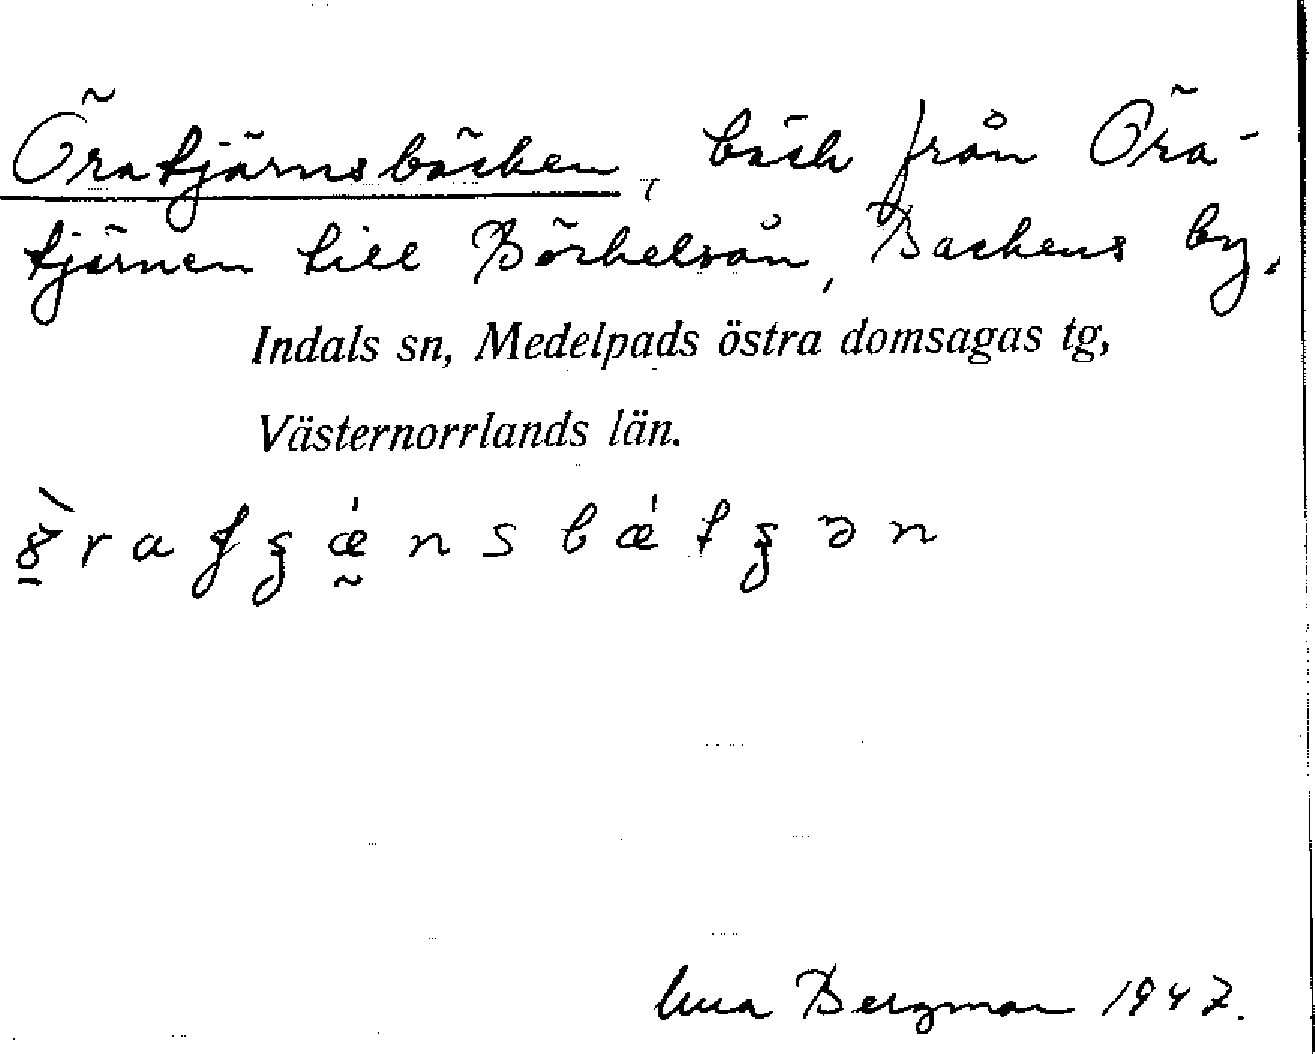 Öratjärnsbäcken, bäck från Öra-
tjärnen till Börkelsån, Backens by.
Indals sn, Medelpads östra domsagas tg,
Västernorrlands län.
Bergman 1947.